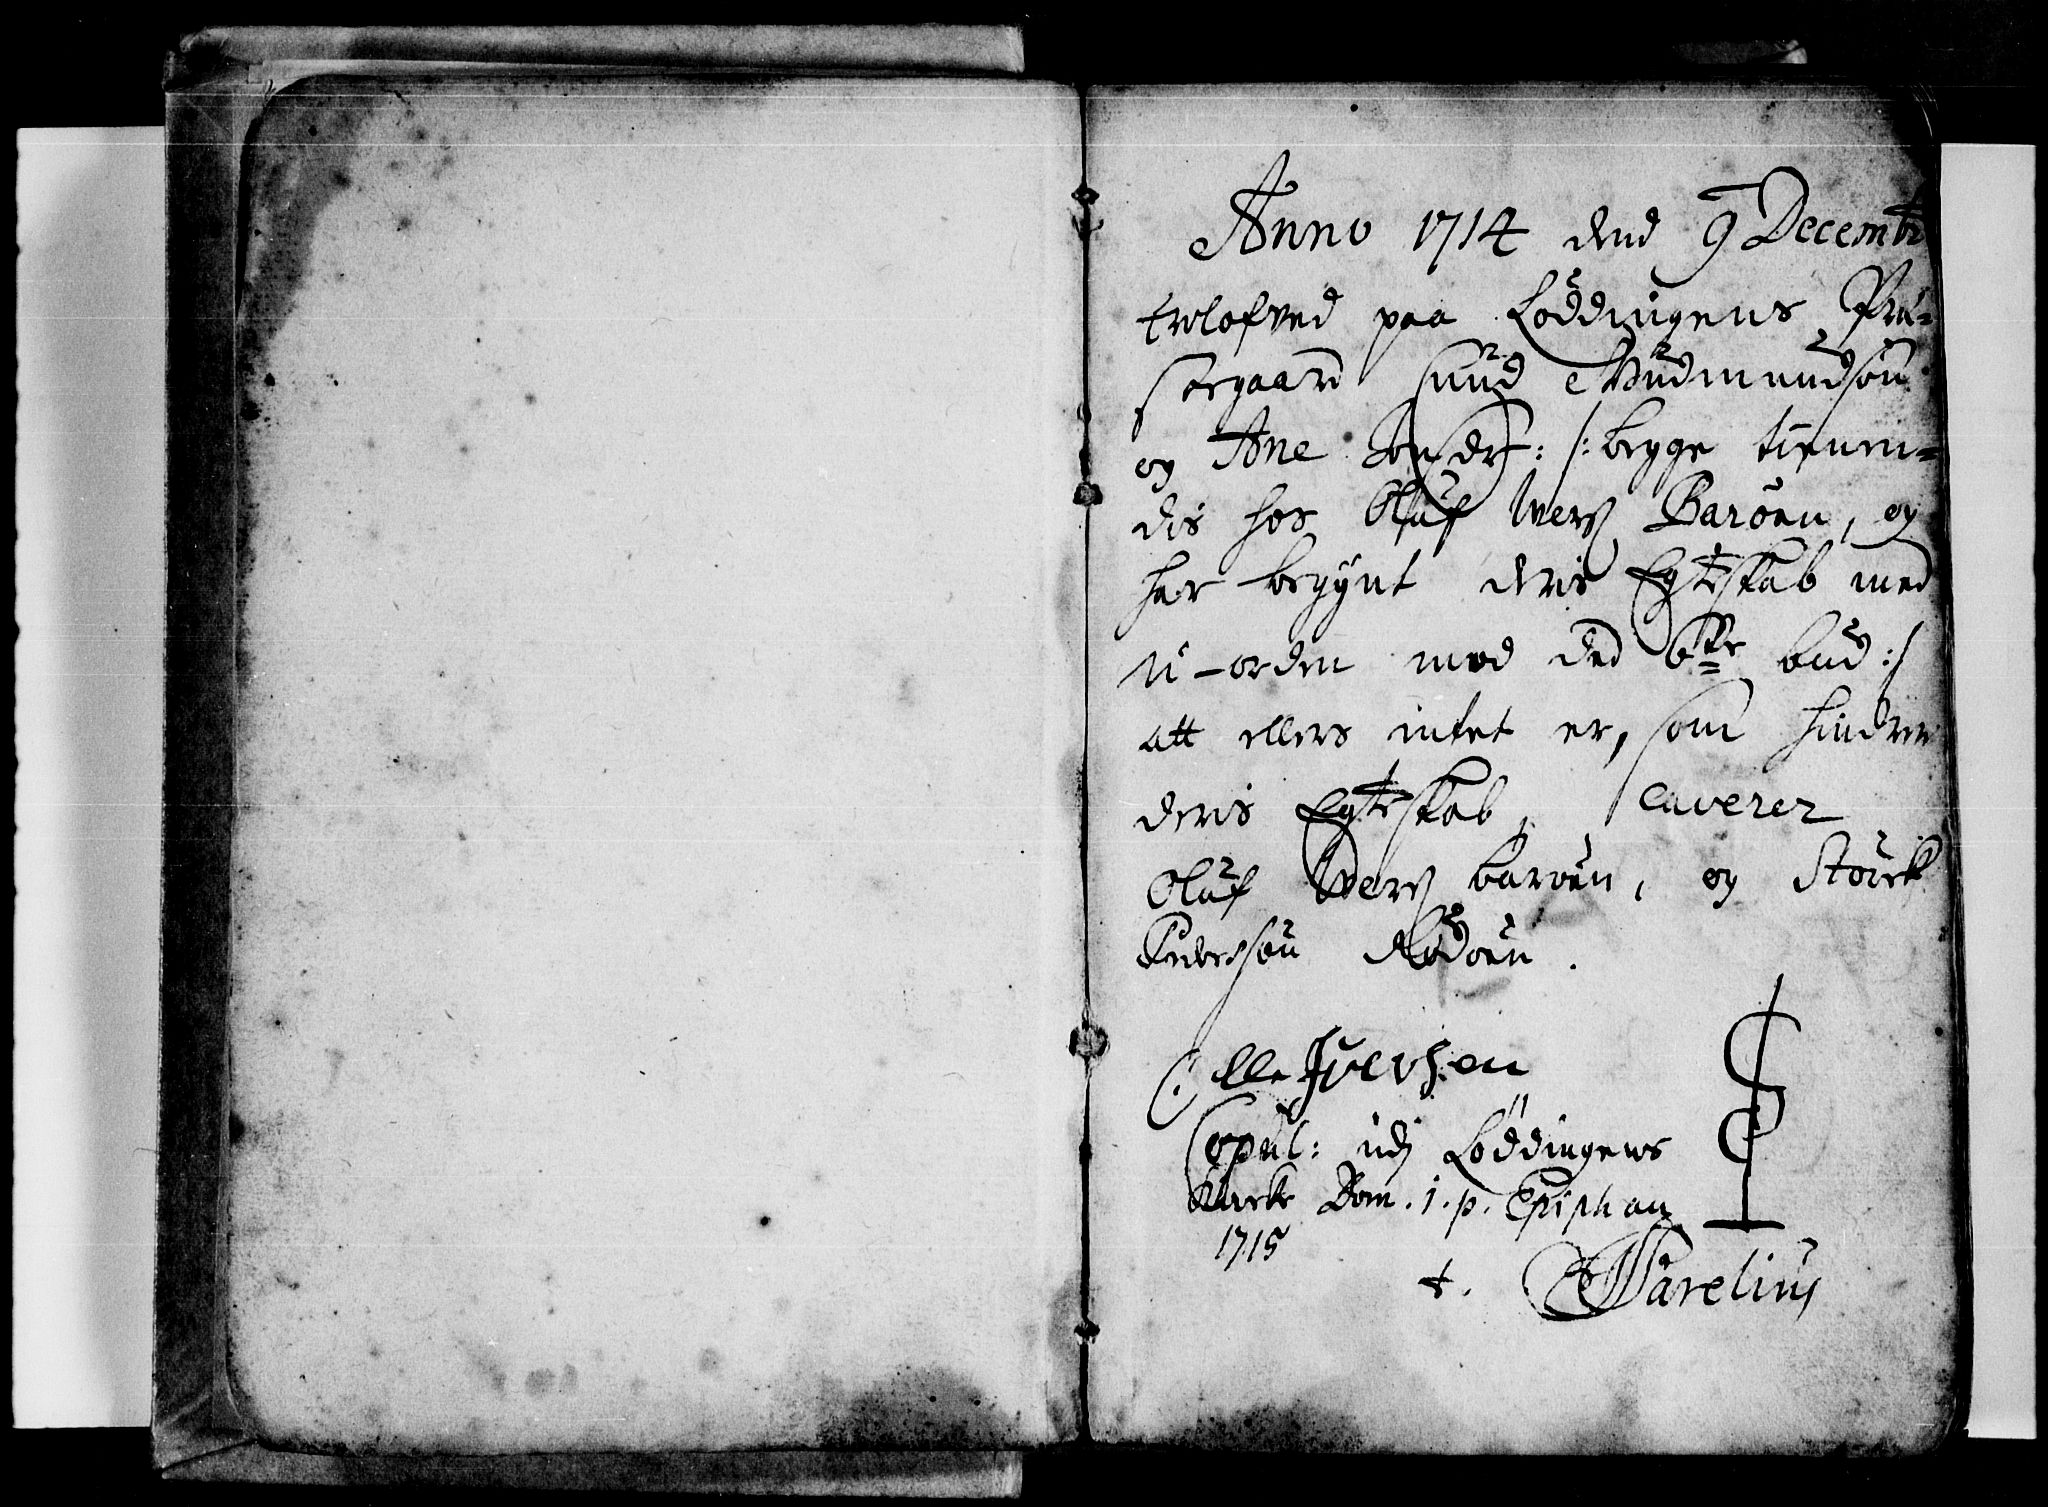 Anno 1714 dend 9 Decembr
trolofved paa Lødingens Præ-
stegaard Knud Gudmundsøn
og Ane Jonsdr: /: begge tienen-
dis hos Oluf Ivers Barøen, og
har begynt deris Egteskab med
U-orden mod ded 6te bud :/
att ellers intet er, som hindrer
deris Egteskab, caverer
Oluf Ivers barøen, og Størck
Rødøen.
Olle Iversen
S P
Copul: udj Lødingens
Kircke Dom. 1. p. Epiphan
1715
t. Parelius